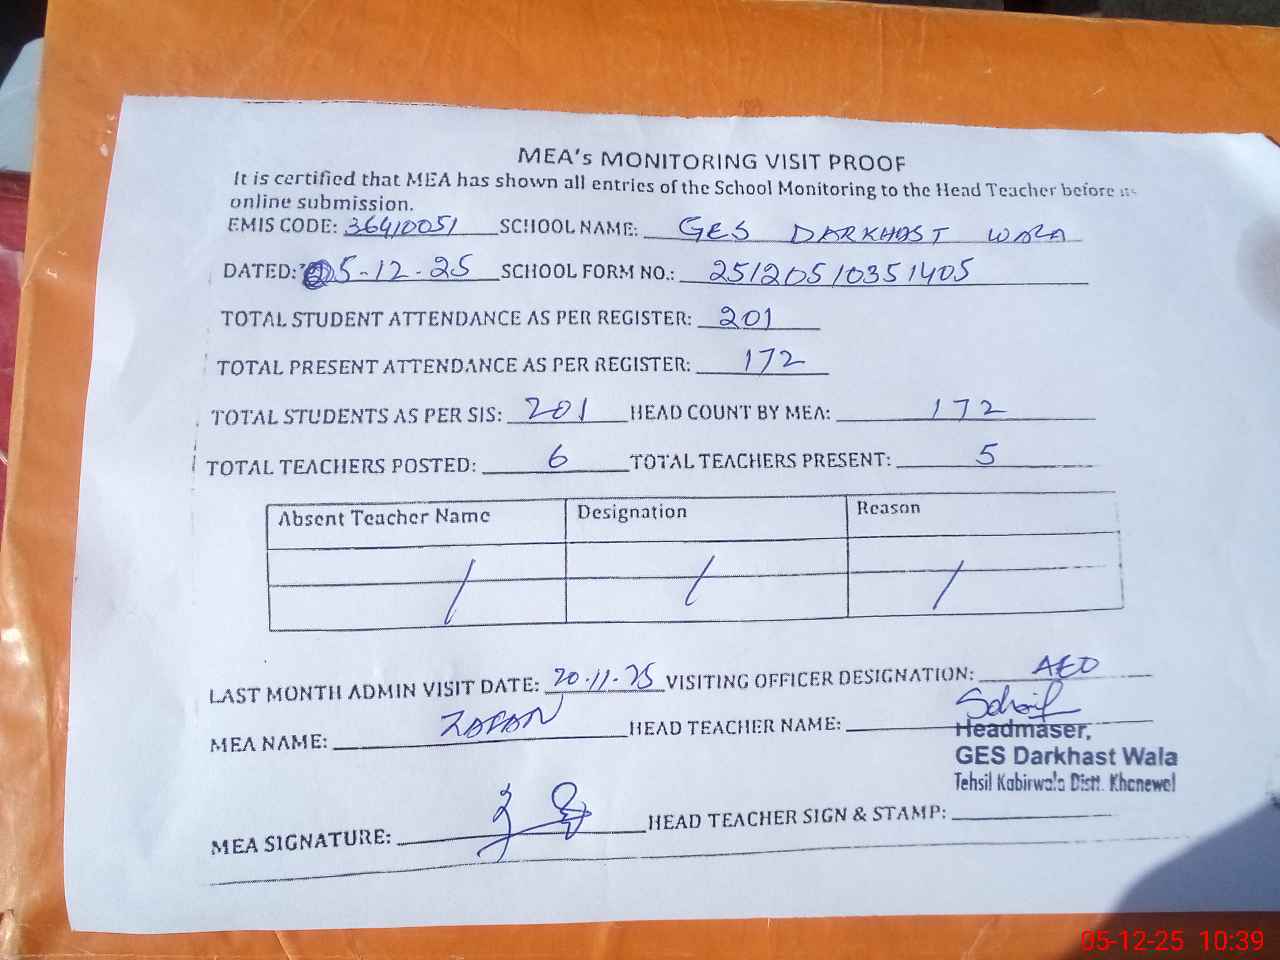 MEA's MONITORING VISIT PROOF
It is certified that MEA has shown all entries of the School Monitoring to the Head Teacher before its
online submission.
EMIS CODE: 36410051 SCHOOL NAME: GES DARKHAST WALA
DATED: 5-12-25 SCHOOL FORM NO.: 25120510351405
TOTAL STUDENT ATTENDANCE AS PER REGISTER: 201
TOTAL PRESENT ATTENDANCE AS PER REGISTER: 172
TOTAL STUDENTS AS PER SIS: 201 HEAD COUNT BY MEA: 172
TOTAL TEACHERS POSTED: 6 TOTAL TEACHERS PRESENT: 5
Absent Teacher Name Designation Reason
/ / /
LAST MONTH ADMIN VISIT DATE: 20-11-25 VISITING OFFICER DESIGNATION: AEO
MEA NAME: ZAFAR HEAD TEACHER NAME:
Headmaser,
GES Darkhast Wala
Tehsil Kabirwala Distt. Khanewel
MEA SIGNATURE: HEAD TEACHER SIGN & STAMP:
05-12-25 10:39